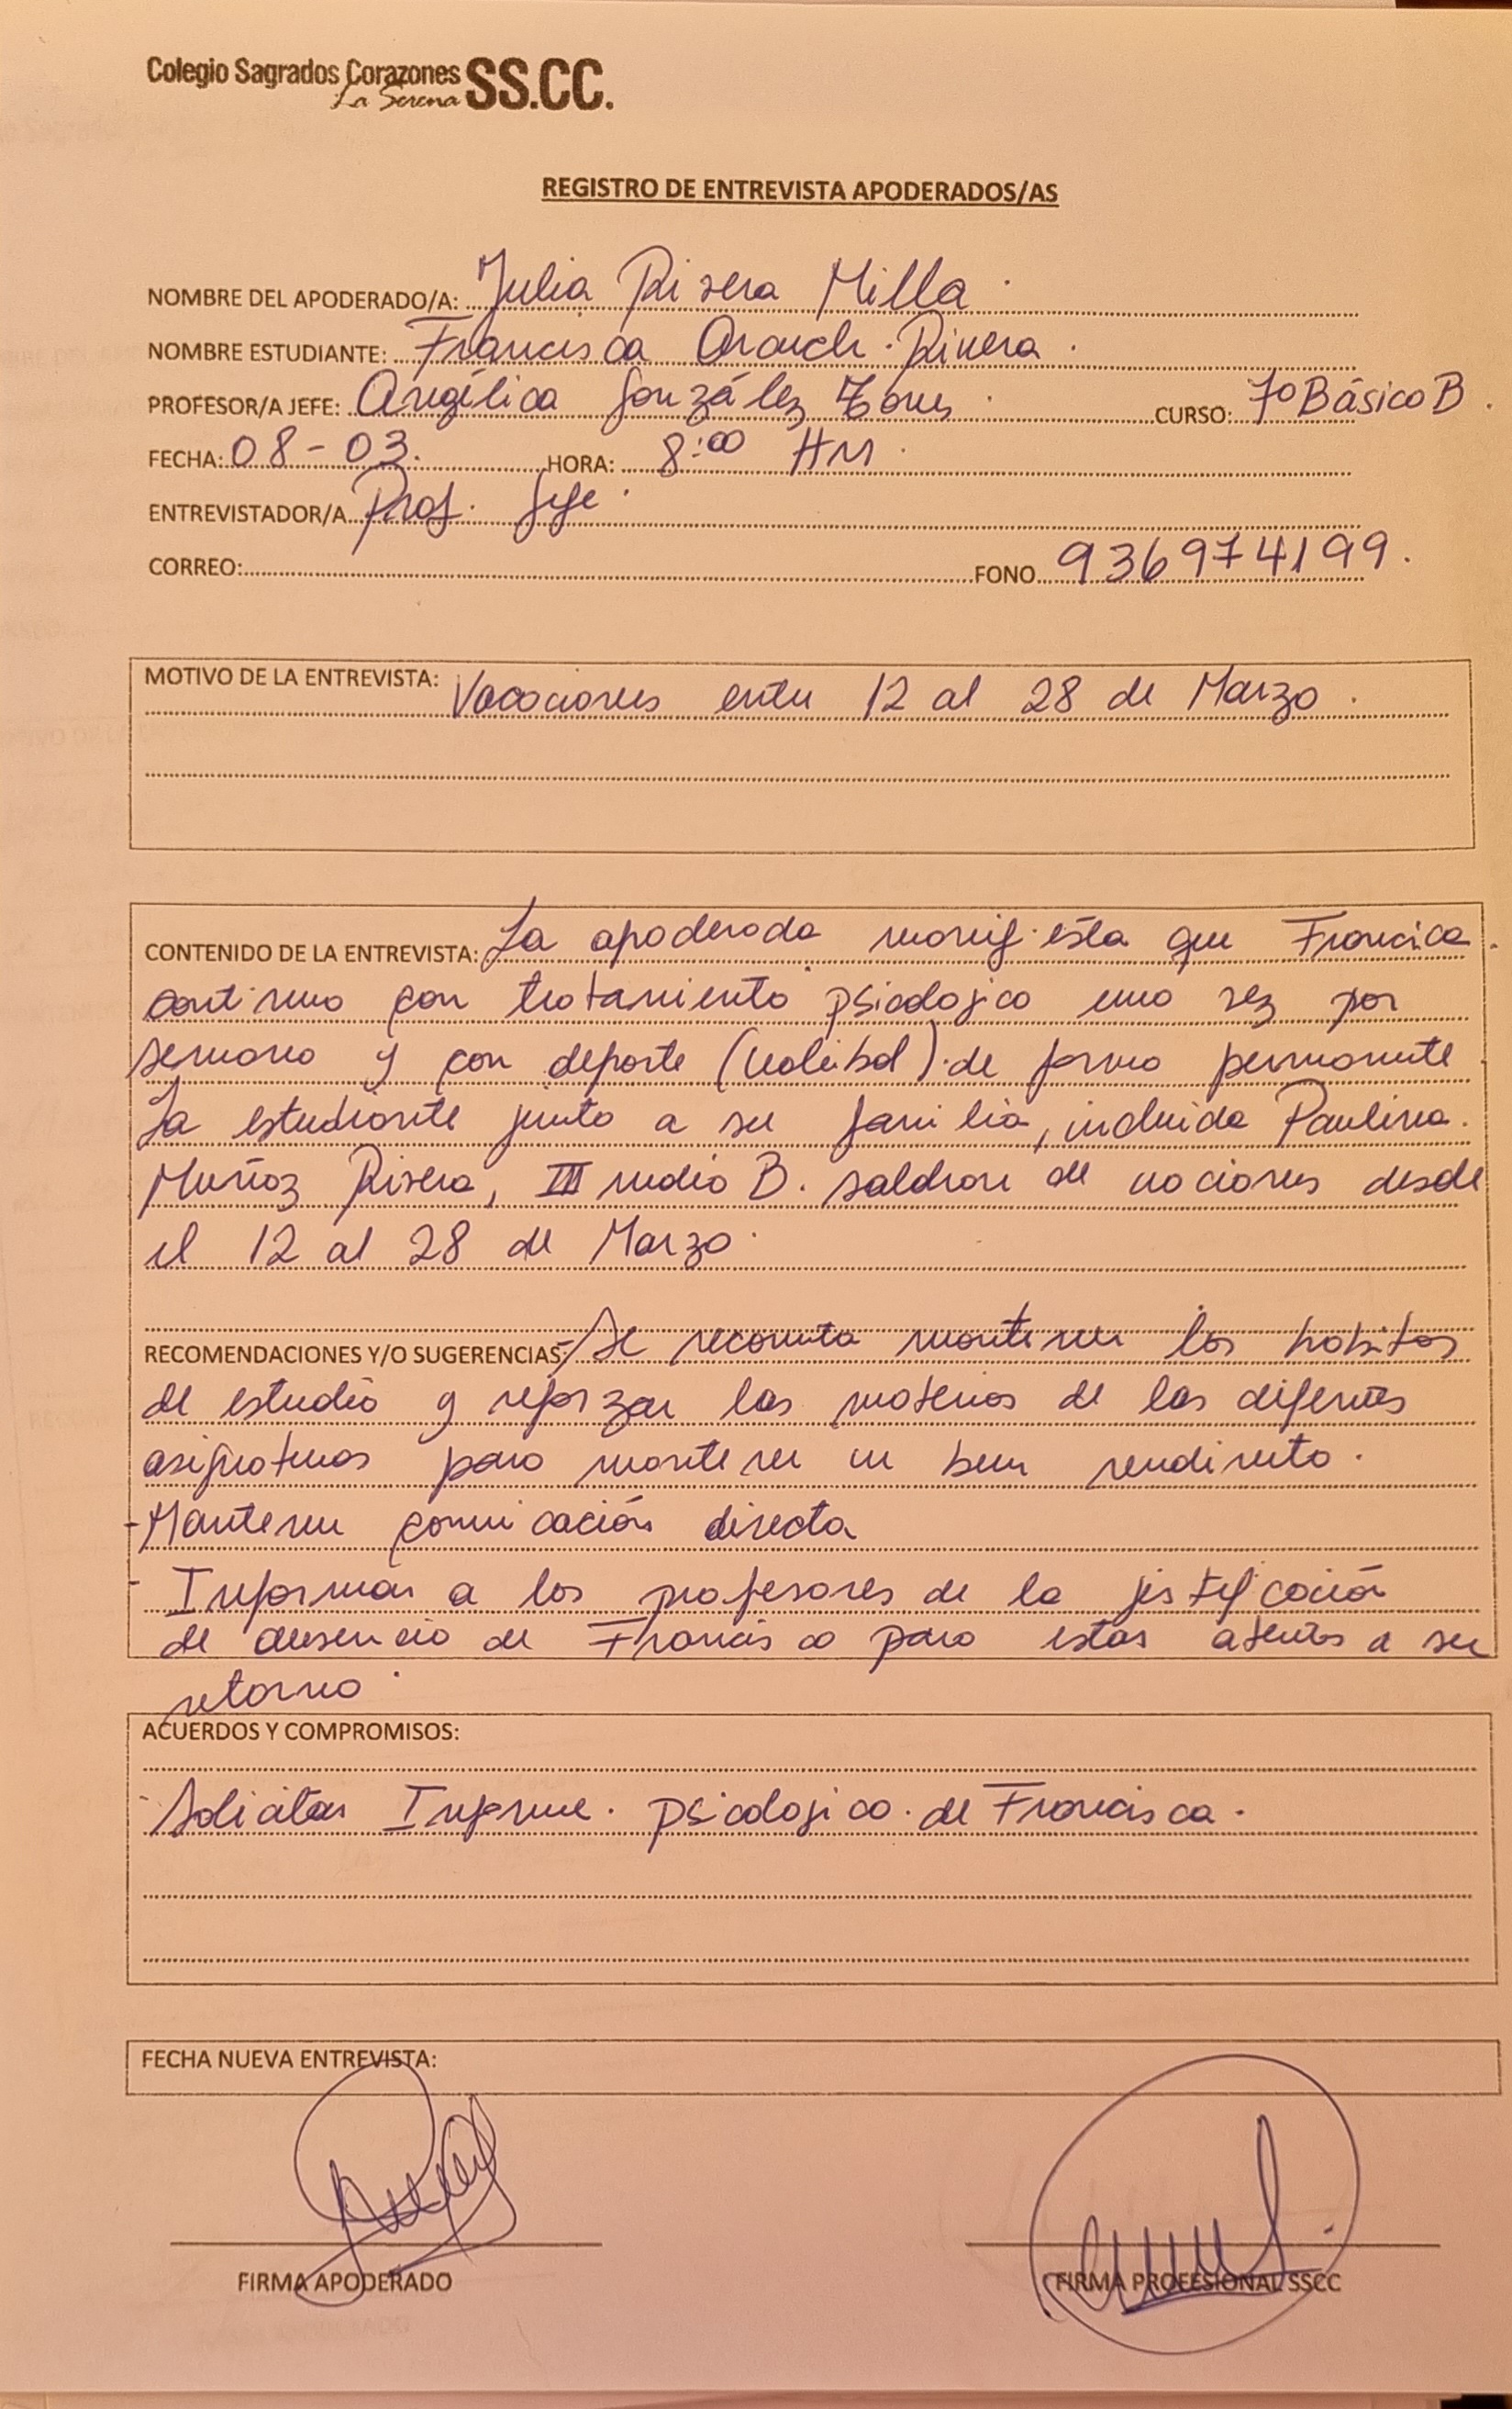 Colegio Sagrados Corazones SS.CC.
La Serena
REGISTRO DE ENTREVISTA APODERADOS/AS
NOMBRE DEL APODERADO/A: Julia Rivera Milla
NOMBRE ESTUDIANTE: Francisca Rivera
PROFESOR/A JEFE: Angélica González CURSO: 7º Básico B
FECHA: 08-03. HORA: 8:00 AM
ENTREVISTADOR/A Prof. Jefe
CORREO: FONO 936974199.
MOTIVO DE LA ENTREVISTA: Vacaciones entre 12 al 28 de Marzo.
CONTENIDO DE LA ENTREVISTA: La apoderada manifiesta que Francisca
continua con tratamiento psicologico una vez por
semana y con deporte (Voleibol) de forma permanente
La estudiante junto a su familia, incluida Paulina
Muñoz Rivera, III medio B. saldran de vaciones desde
el 12 al 28 de Marzo.
RECOMENDACIONES Y/O SUGERENCIAS: - Se mantener los habitos
de estudio y reforzar las materias de las diferentes
asignaturas para mantener un buen rendimiento.
- Mantener comunicación directa
- Informar a los profesores de la justificación
de ausencia de Francisca para estar atentos a su
retorno.
ACUERDOS Y COMPROMISOS:
- Solicitar Informe psicologico de Francisca.
FECHA NUEVA ENTREVISTA:
FIRMA APODERADO FIRMA PROFESIONAL SSCC